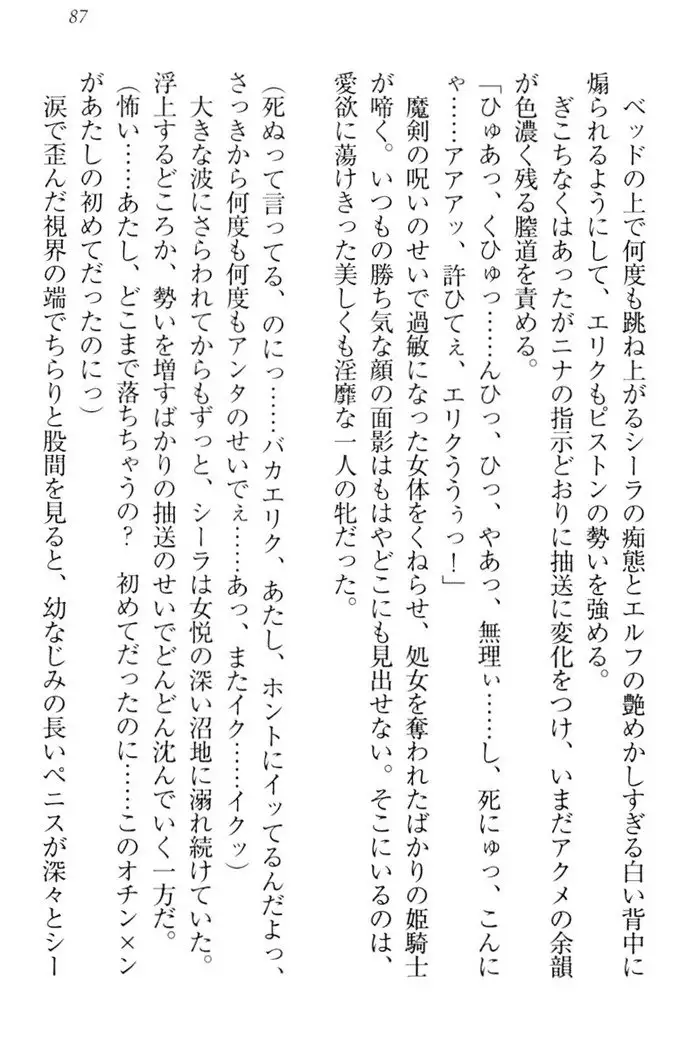 87
ベッドの上で何度も跳ね上がるシーラの痴態とエルフの艶めかしすぎる白い背中に
煽られるようにして、エリクもピストンの勢いを強める。
ぎこちなくはあったがニナの指示どおりに抽送に変化をつけ、いまだアクメの余韻
が色濃く残る膣道を責める。
「ひゅあっ、くひゅっ……んひっ、ひっ、やあっ、無理ぃ……し、死にゅっ、こんに
ゃ……アアアッ、許ひてぇ、エリクううぅっ！」
魔剣の呪いのせいで過敏になった女体をくねらせ、処女を奪われたばかりの姫騎士
が啼く。いつもの勝ち気な顔の面影はもはやどこにも見出せない。そこにいるのは、
愛欲に蕩けきった美しくも淫靡な一人の牝だった。
（死ぬって言ってる、のにっ……バカエリク、あたし、ホントにイッてるんだよっ、
さっきから何度も何度もアンタのせいでぇ……あっ、またイク……イクッ）
大きな波にさらわれてからもずっと、シーラは女悦の深い沼地に溺れ続けていた。
浮上するどころか、勢いを増すばかりの抽送のせいでどんどん沈んでいく一方だ。
（怖い……あたし、どこまで落ちちゃうの？　初めてだったのに……このオチン×ン
があたしの初めてだったのにっ）
涙で歪んだ視界の端でちらりと股間を見ると、幼なじみの長いペニスが深々とシー